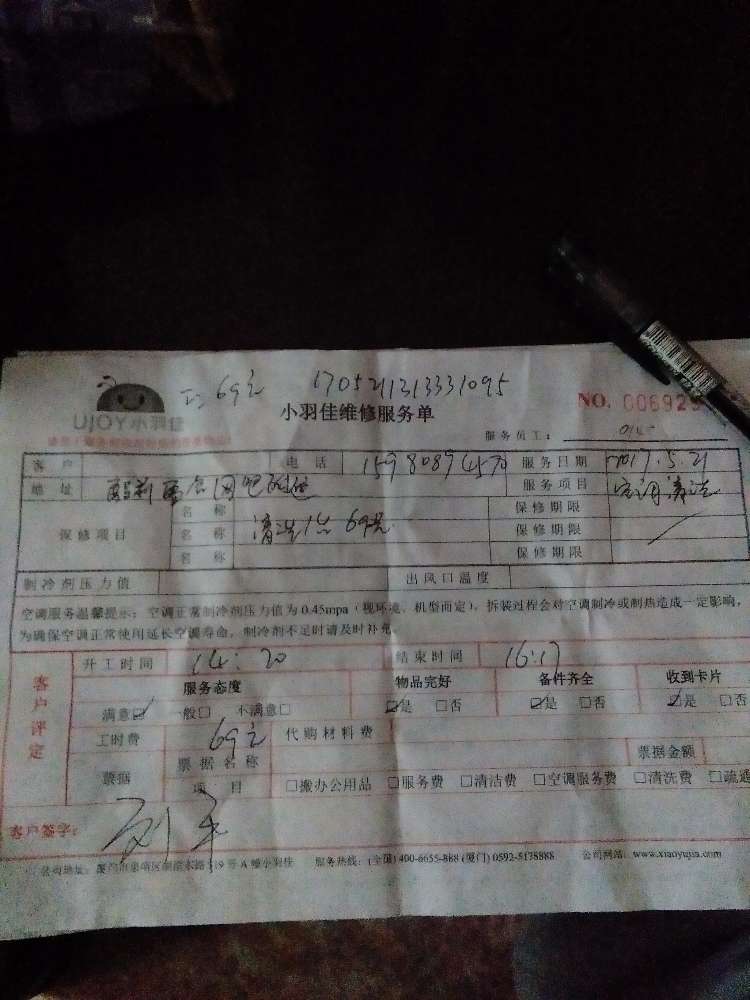 69元 1705211313331095
UJOY小羽佳
小羽佳维修服务单
NO. 006925
服务员工:
客户 电话 服务日期 2017.5.21
地址 服务项目 空调清洗
保修项目 名称 保修期限
名称 清洗1台 69元 保修期限
名称 保修期限
制冷剂压力值 出风口温度
空调服务温馨提示:空调正常制冷剂压力值为0.45mpa(视环境、机型而定),拆装过程会对空调制冷或制热造成一定影响,
为确保空调正常使用延长空调寿命,制冷剂不足时请及时补充。
客户评定
升工时间 14:20 结束时间 16:17
服务态度 物品完好 备件齐全 收到卡片
满意☑ 一般□ 不满意□ ☑是 □否 ☑是 □否 ☑是 □否
工时费 69元 代购材料费
票据 票据名称 票据金额
项目 □搬办公用品 □服务费 □清洁费 □空调服务费 □清洗费 □疏通
客户签字:
公司地址: 服务热线:(全国)400-6655-888 (厦门) 0592-5178888 公司网站: www.xiaoyujia.com